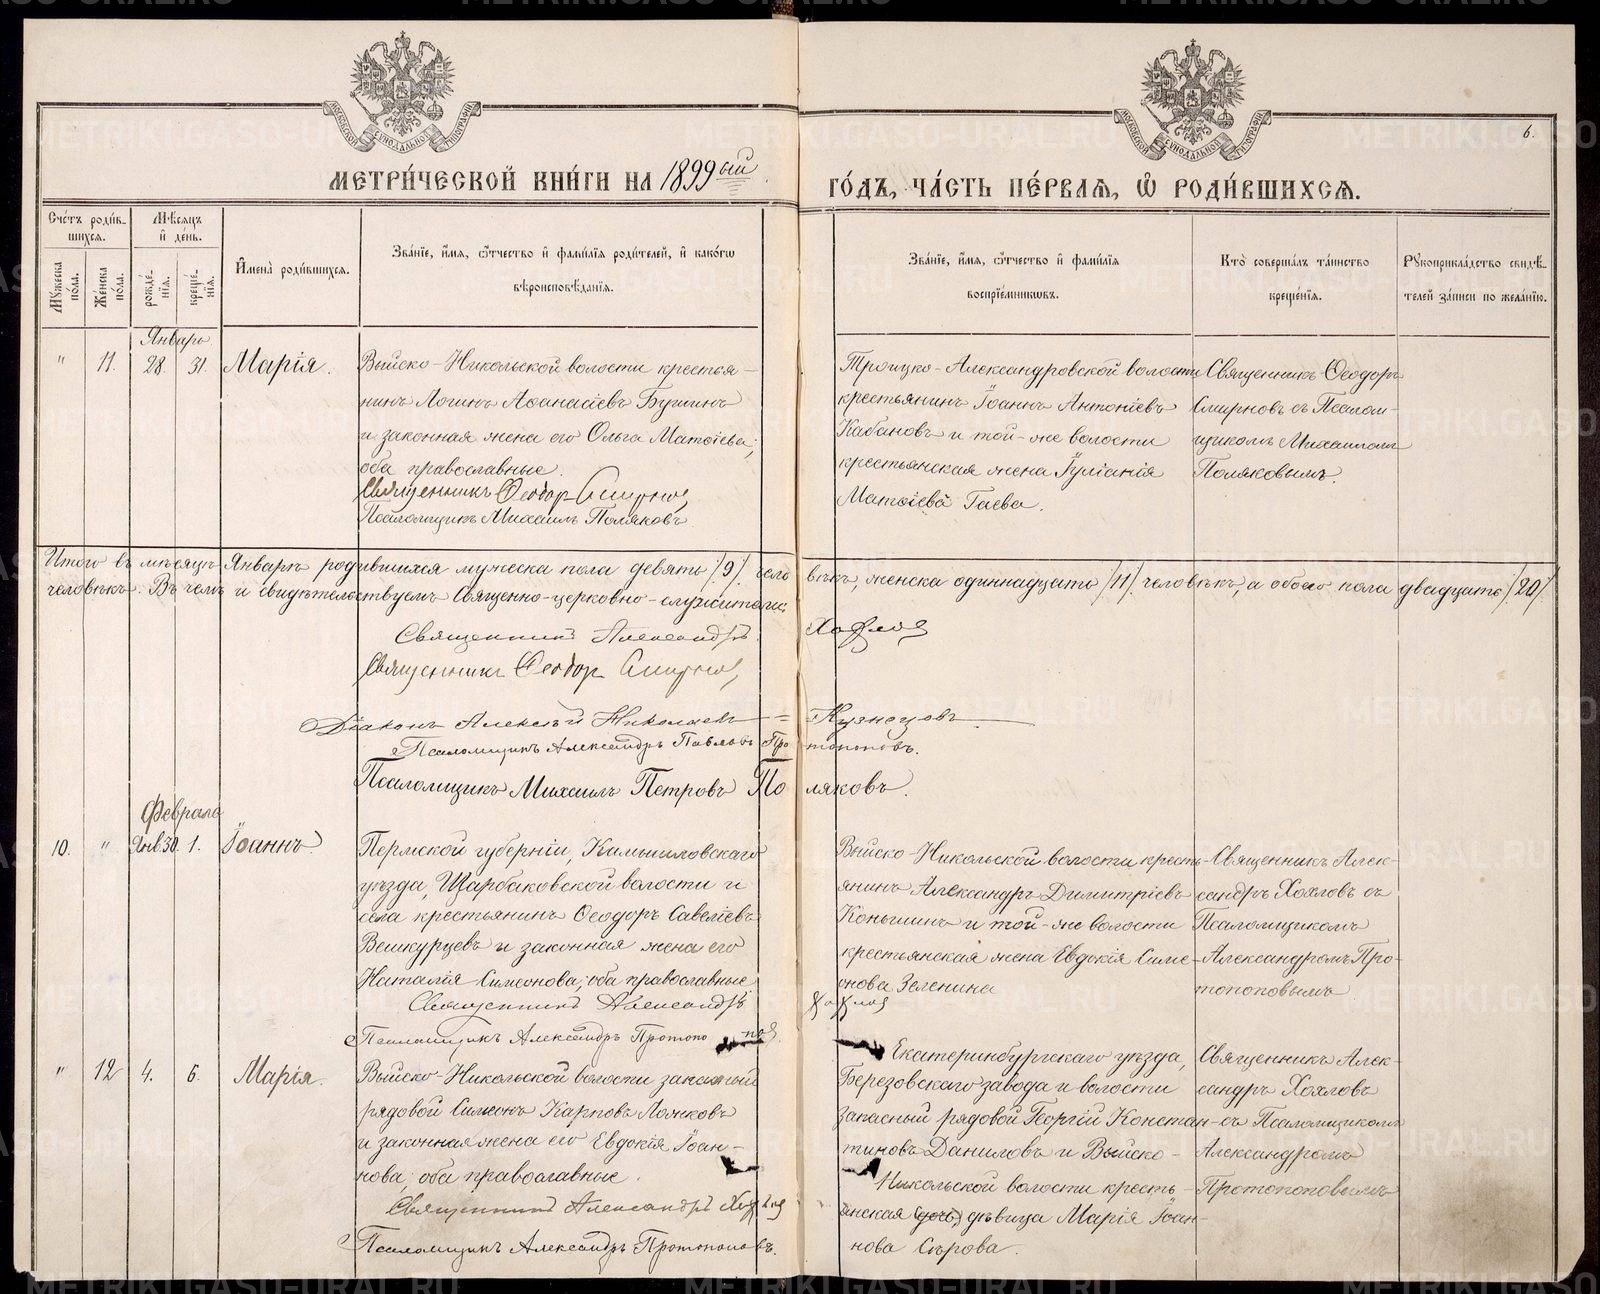 МОСКОВСКОЙ СѴНОДАЛЬНОЙ ТИПОГРАФІИ
МОСКОВСКОЙ СѴНОДАЛЬНОЙ ТИПОГРАФІИ
6.
МЕТРИ́ЧЕСКОЙ КНИ́ГИ НА 1899ый ГО́ДЪ, ЧА́СТЬ ПЕ́РВАѦ, Ѡ҆ РОДИ́ВШИХСѦ.
Сче́тъ роди́в-
шихсѧ.
Мѣ́сѧцъ
и҆ де́нь.
Мꙋ́жеска по́ла.
Же́нска по́ла.
рожде́-
нїѧ.
креще́-
нїѧ.
И҆мена̀ роди́вшихсѧ.
Зва́нїе, и҆́мѧ, ѻ҆́тчество и҆ фами́лїѧ роди́телей, и҆ како́гѡ
вѣроисповѣ́данїѧ.
Зва́нїе, и҆́мѧ, ѻ҆́тчество и҆ фами́лїѧ
воспрїе́мниковъ.
Кто̀ соверша́лъ та́инство
креще́нїѧ.
Рꙋкоприкла́дство свидѣ́-
телей за́писи по жела́нїю.
Январь
" 11. 28. 31. Марія.
Выйско-Никольской волости крестья-
нинъ Логинъ Аѳанасіевъ Бушинъ
и законная жена его Ольга Матѳіева;
оба православные.
Священникъ Ѳеодор Смирнов
Псаломщикъ Михаилъ Поляковъ
Троицко-Александровской волости
крестьянинъ Іоаннъ Антоніевъ
Кабановъ и той-же волости
крестьянская жена Іуліанія
Матѳіева Гаева.
Священникъ Ѳеодоръ
Смирновъ съ Псалом-
щикомъ Михаиломъ
Поляковымъ.
Итого въ мѣсяцѣ Январѣ родившихся мужеска пола девять /9/ чело вѣкъ, женска одиннадцать /11/ человѣкъ, а обоего пола двадцать /20/
человѣкъ. Въ чемъ и свидѣтельствуемъ Священно-церковно-служители:
Священникъ Александръ Хохлов
Священникъ Ѳеодор Смирнов
Діаконъ Алексѣй Николаевъ = Кузнецовъ
Псаломщикъ Александръ Павловъ Про топоповъ.
Псаломщикъ Михаилъ Петровъ По ляковъ.
Февраль
10. " Янв.30. 1. Іоаннъ.
Пермской губерніи, Камышловскаго
уѣзда, Щарбаковской волости и
села крестьянинъ Ѳеодоръ Савеліевъ
Вешкурцевъ и законная жена его
Наталія Симеонова; оба православные
Священникъ Александръ Хохлов
Псаломщикъ Александръ Протопопов
Выйско-Никольской волости кресть-
янинъ Александръ Димитріевъ
Коньшинъ и той-же волости
крестьянская жена Евдокія Симе-
онова Зеленина
Священникъ Алек-
сандръ Хохловъ съ
Псаломщикомъ
Александромъ Про-
топоповымъ
" 12 4. 6. Марія.
Выйско-Никольской волости запасный
рядовой Симеонъ Карповъ Ложковъ
и законная жена его Евдокія Іоан-
нова; оба православные.
Священникъ Александръ Хохлов
Псаломщикъ Александръ Протопоповъ.
Екатеринбургскаго уѣзда,
Березовскаго завода и волости
запасный рядовой Георгій Констан-
тиновъ Даниловъ и Выйско-
Никольской волости кресть-
янская (дочь) дѣвица Марія Іоан-
нова Сѣрова.
Священникъ Алек-
сандръ Хохловъ
съ Псаломщикомъ
Александромъ
Протопоповымъ
METRIKI.GASO-URAL.RU